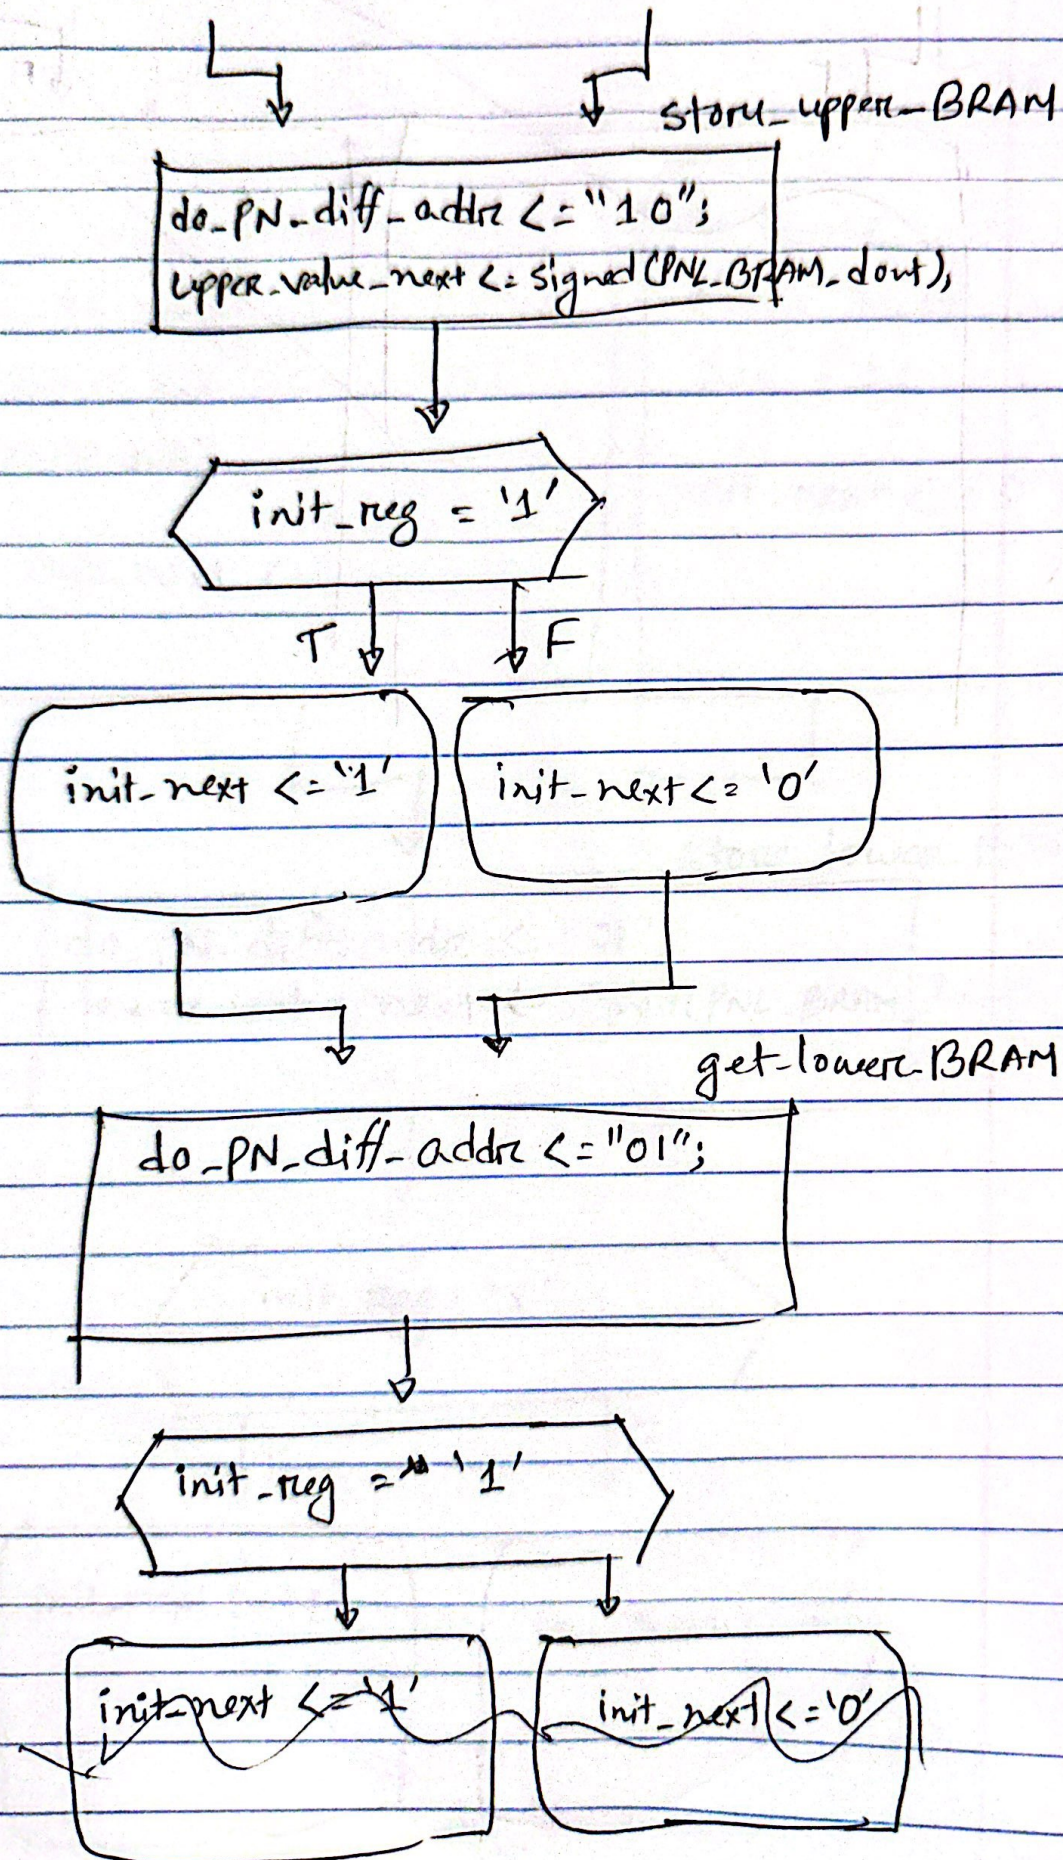 store_upper_BRAM
do_PN_diff_addr <= "10";
upper_value_next <= signed(PNL_BRAM_dout);
init_reg = '1'
T F
init_next <= '1' init_next <= '0'
get_lower_BRAM
do_PN_diff_addr <= "01";
init_reg = '1'
init_next <= '1' init_next <= '0'